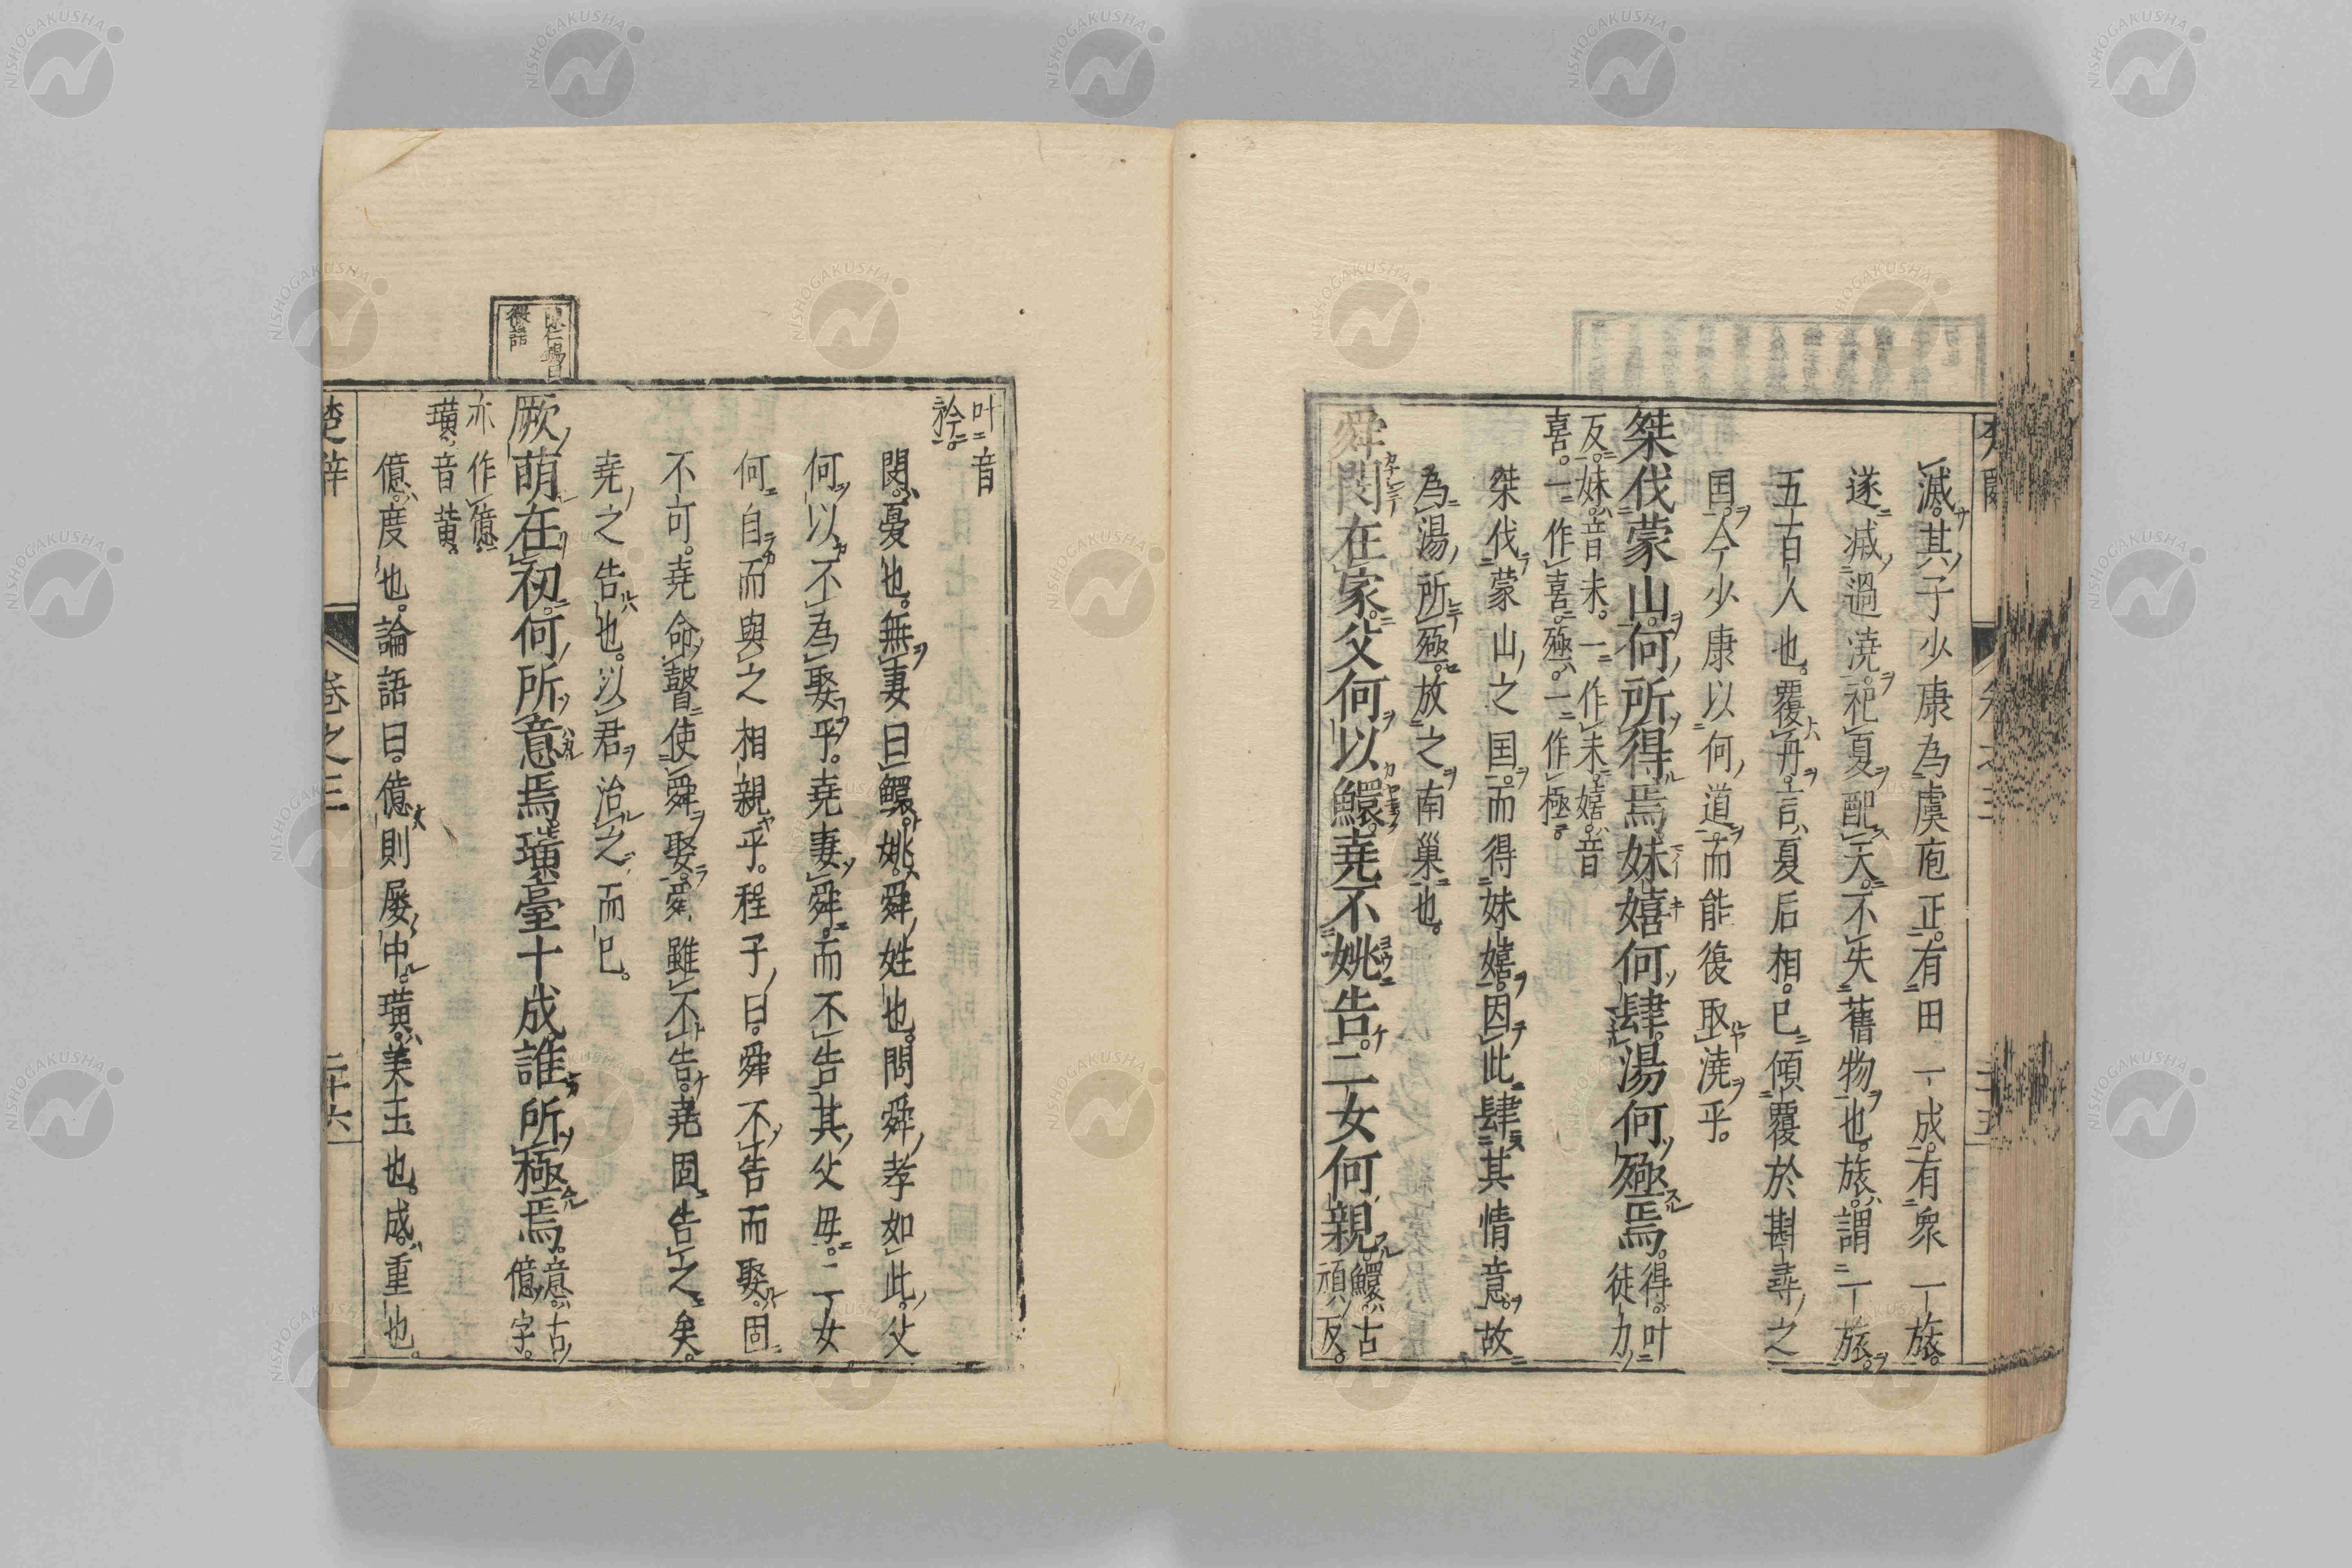 滅其子少康為虞庖正有田一成有衆一旅
遂滅過澆祀夏配天不失舊物也旅謂一旅
五百人也覆舟言夏后相已傾覆於斟尋之
国今少康以何道而能復取澆乎
桀伐蒙山何所得焉妺嬉何肆湯何殛焉得叶徒力
反妺音末一作末嬉音
喜一作喜殛一作極
桀伐蒙山之国而得妺嬉因此肆其情意故
為湯所殛放之南巢也
舜閔在家父何以鱞堯不姚告二女何親鱞古頑反
叶音
矜
閔憂也無妻曰鱞姚舜姓也問舜孝如此父
何以不為娶乎堯妻舜而不告其父毋二女
何自而與之相親乎程子曰舜不告而娶固
不可堯命瞽使舜娶舜雖不告堯固告之矣
堯之告也以君治之而已
厥萌在初何所意焉璜臺十成誰所極焉意古億字
亦作億
璜音黄
億度也論語曰億則屡中璜美玉也成重也
楚辞 卷之三 二十六
NISHOGAKUSHA